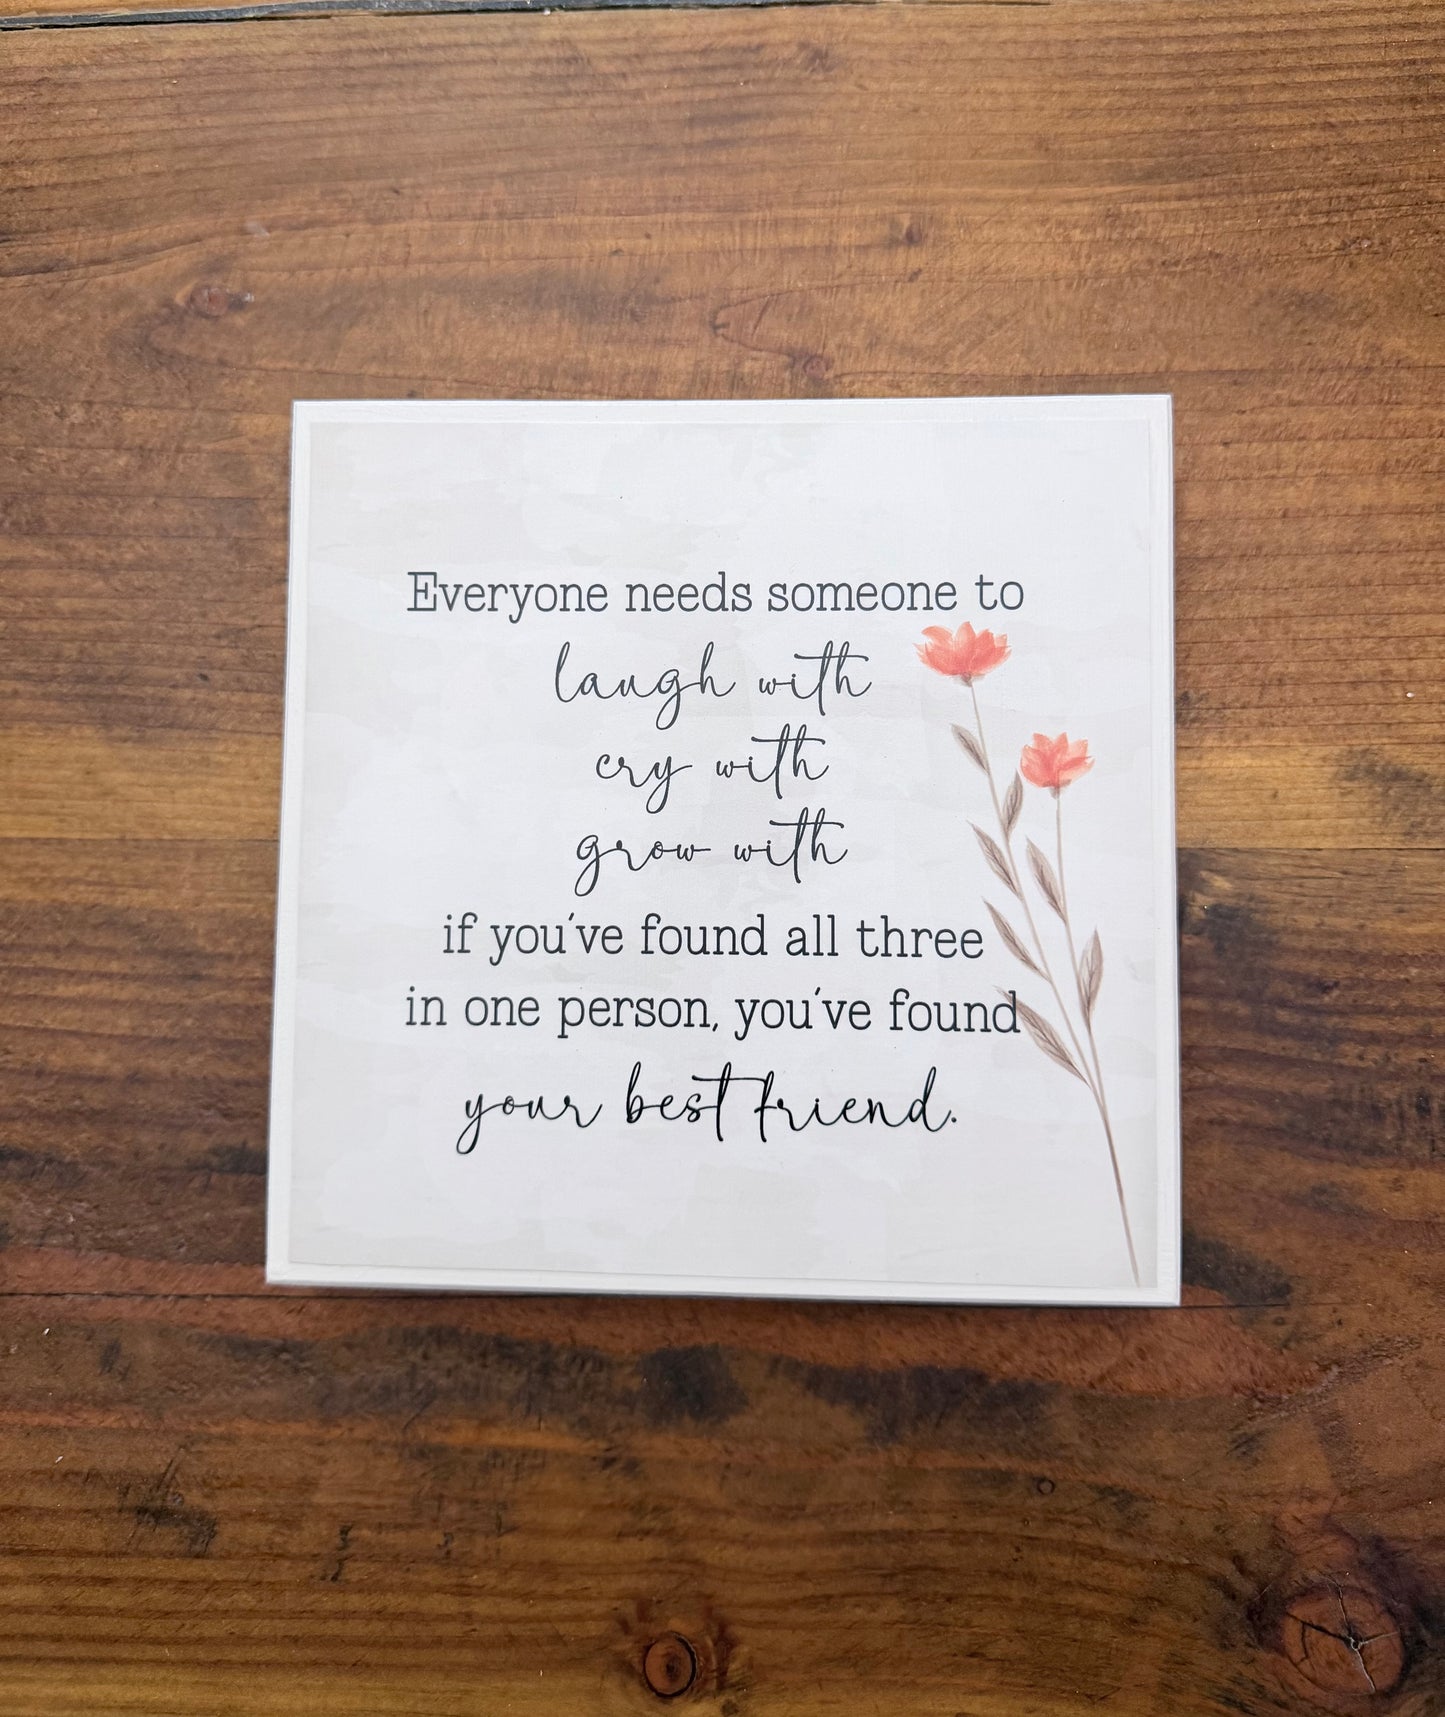 Everyone needs someone to
laugh with
cry with
grow with
if you've found all three
in one person, you've found
your best friend.